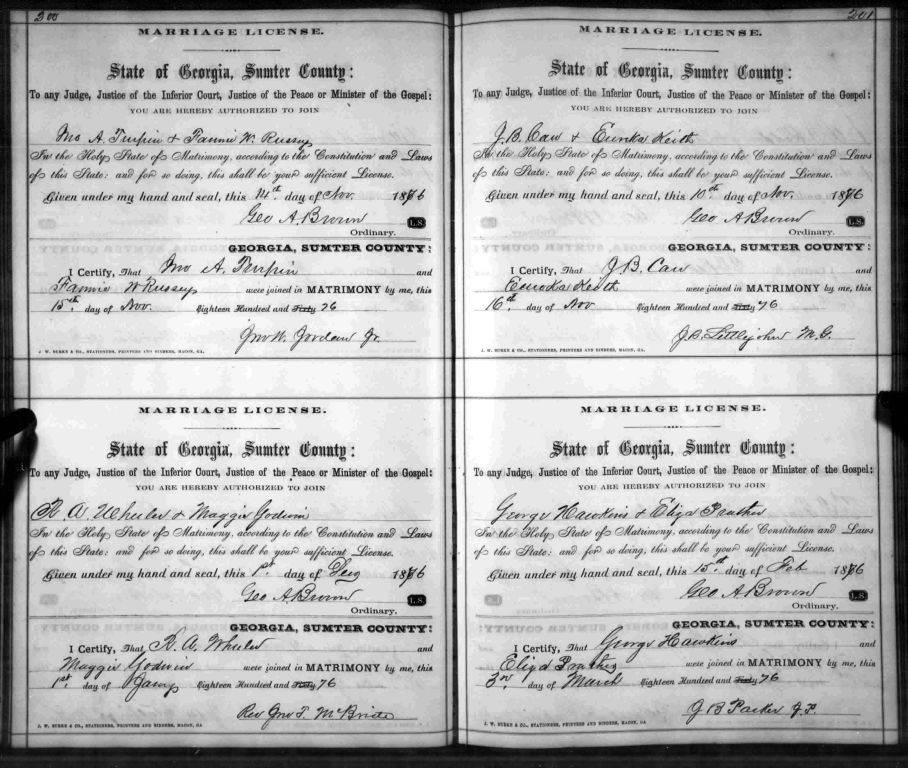 300
MARRIAGE LICENSE.
State of Georgia, Sumter County:
To any Judge, Justice of the Inferior Court, Justice of the Peace or Minister of the Gospel:
YOU ARE HEREBY AUTHORIZED TO JOIN
Jno A. Turpin & Fannie W. Russey
In the Holy State of Matrimony, according to the Constitution and Laws
of this State: and for so doing, this shall be your sufficient License.
Given under my hand and seal, this 14th day of Nov. 1876
Geo A Brown L.S.
Ordinary.
GEORGIA, SUMTER COUNTY:
I Certify, That Jno A. Turpin and
Fannie W Russey were joined in MATRIMONY by me, this
15th day of Nov. Eighteen Hundred and Sixty 76
Jno W. Jordan Jr.
J. W. BURKE & CO., STATIONERS, PRINTERS AND BINDERS, MACON, GA.
MARRIAGE LICENSE.
State of Georgia, Sumter County:
To any Judge, Justice of the Inferior Court, Justice of the Peace or Minister of the Gospel:
YOU ARE HEREBY AUTHORIZED TO JOIN
R A Wheeler & Maggie Godwin
In the Holy State of Matrimony, according to the Constitution and Laws
of this State: and for so doing, this shall be your sufficient License.
Given under my hand and seal, this 1st day of 1876
Geo A Brown L.S.
Ordinary.
GEORGIA, SUMTER COUNTY:
I Certify, That R. A. Wheeler and
Maggie Godwin were joined in MATRIMONY by me, this
1st day of Eighteen Hundred and Sixty 76
Rev Jno T. McBride
J. W. BURKE & CO., STATIONERS, PRINTERS AND BINDERS, MACON, GA
201
MARRIAGE LICENSE.
State of Georgia, Sumter County:
To any Judge, Justice of the Inferior Court, Justice of the Peace or Minister of the Gospel:
YOU ARE HEREBY AUTHORIZED TO JOIN
J. B. & Eureka Keith
In the Holy State of Matrimony, according to the Constitution and Laws
of this State: and for so doing, this shall be your sufficient License.
Given under my hand and seal, this 10th day of Nov. 1876
Geo A Brown L.S.
Ordinary.
GEORGIA, SUMTER COUNTY:
I Certify, That J. B. and
Eureka Keith were joined in MATRIMONY by me, this
16th day of Nov Eighteen Hundred and Sixty 76
J. B. Littlejohn M.G.
J. W. BURKE & CO., STATIONERS, PRINTERS AND BINDERS, MACON, GA.
MARRIAGE LICENSE.
State of Georgia, Sumter County:
To any Judge, Justice of the Inferior Court, Justice of the Peace or Minister of the Gospel:
YOU ARE HEREBY AUTHORIZED TO JOIN
George Hawkins & Eliza Prather
In the Holy State of Matrimony, according to the Constitution and Laws
of this State: and for so doing, this shall be your sufficient License.
Given under my hand and seal, this 15th day of Feb 1876
Geo A Brown L.S.
Ordinary.
GEORGIA, SUMTER COUNTY:
I Certify, That George Hawkins and
Eliza Prather were joined in MATRIMONY by me, this
3rd day of March Eighteen Hundred and Sixty 76
J B Parker J.P.
J. W. BURKE & CO., STATIONERS, PRINTERS AND BINDERS, MACON, GA.